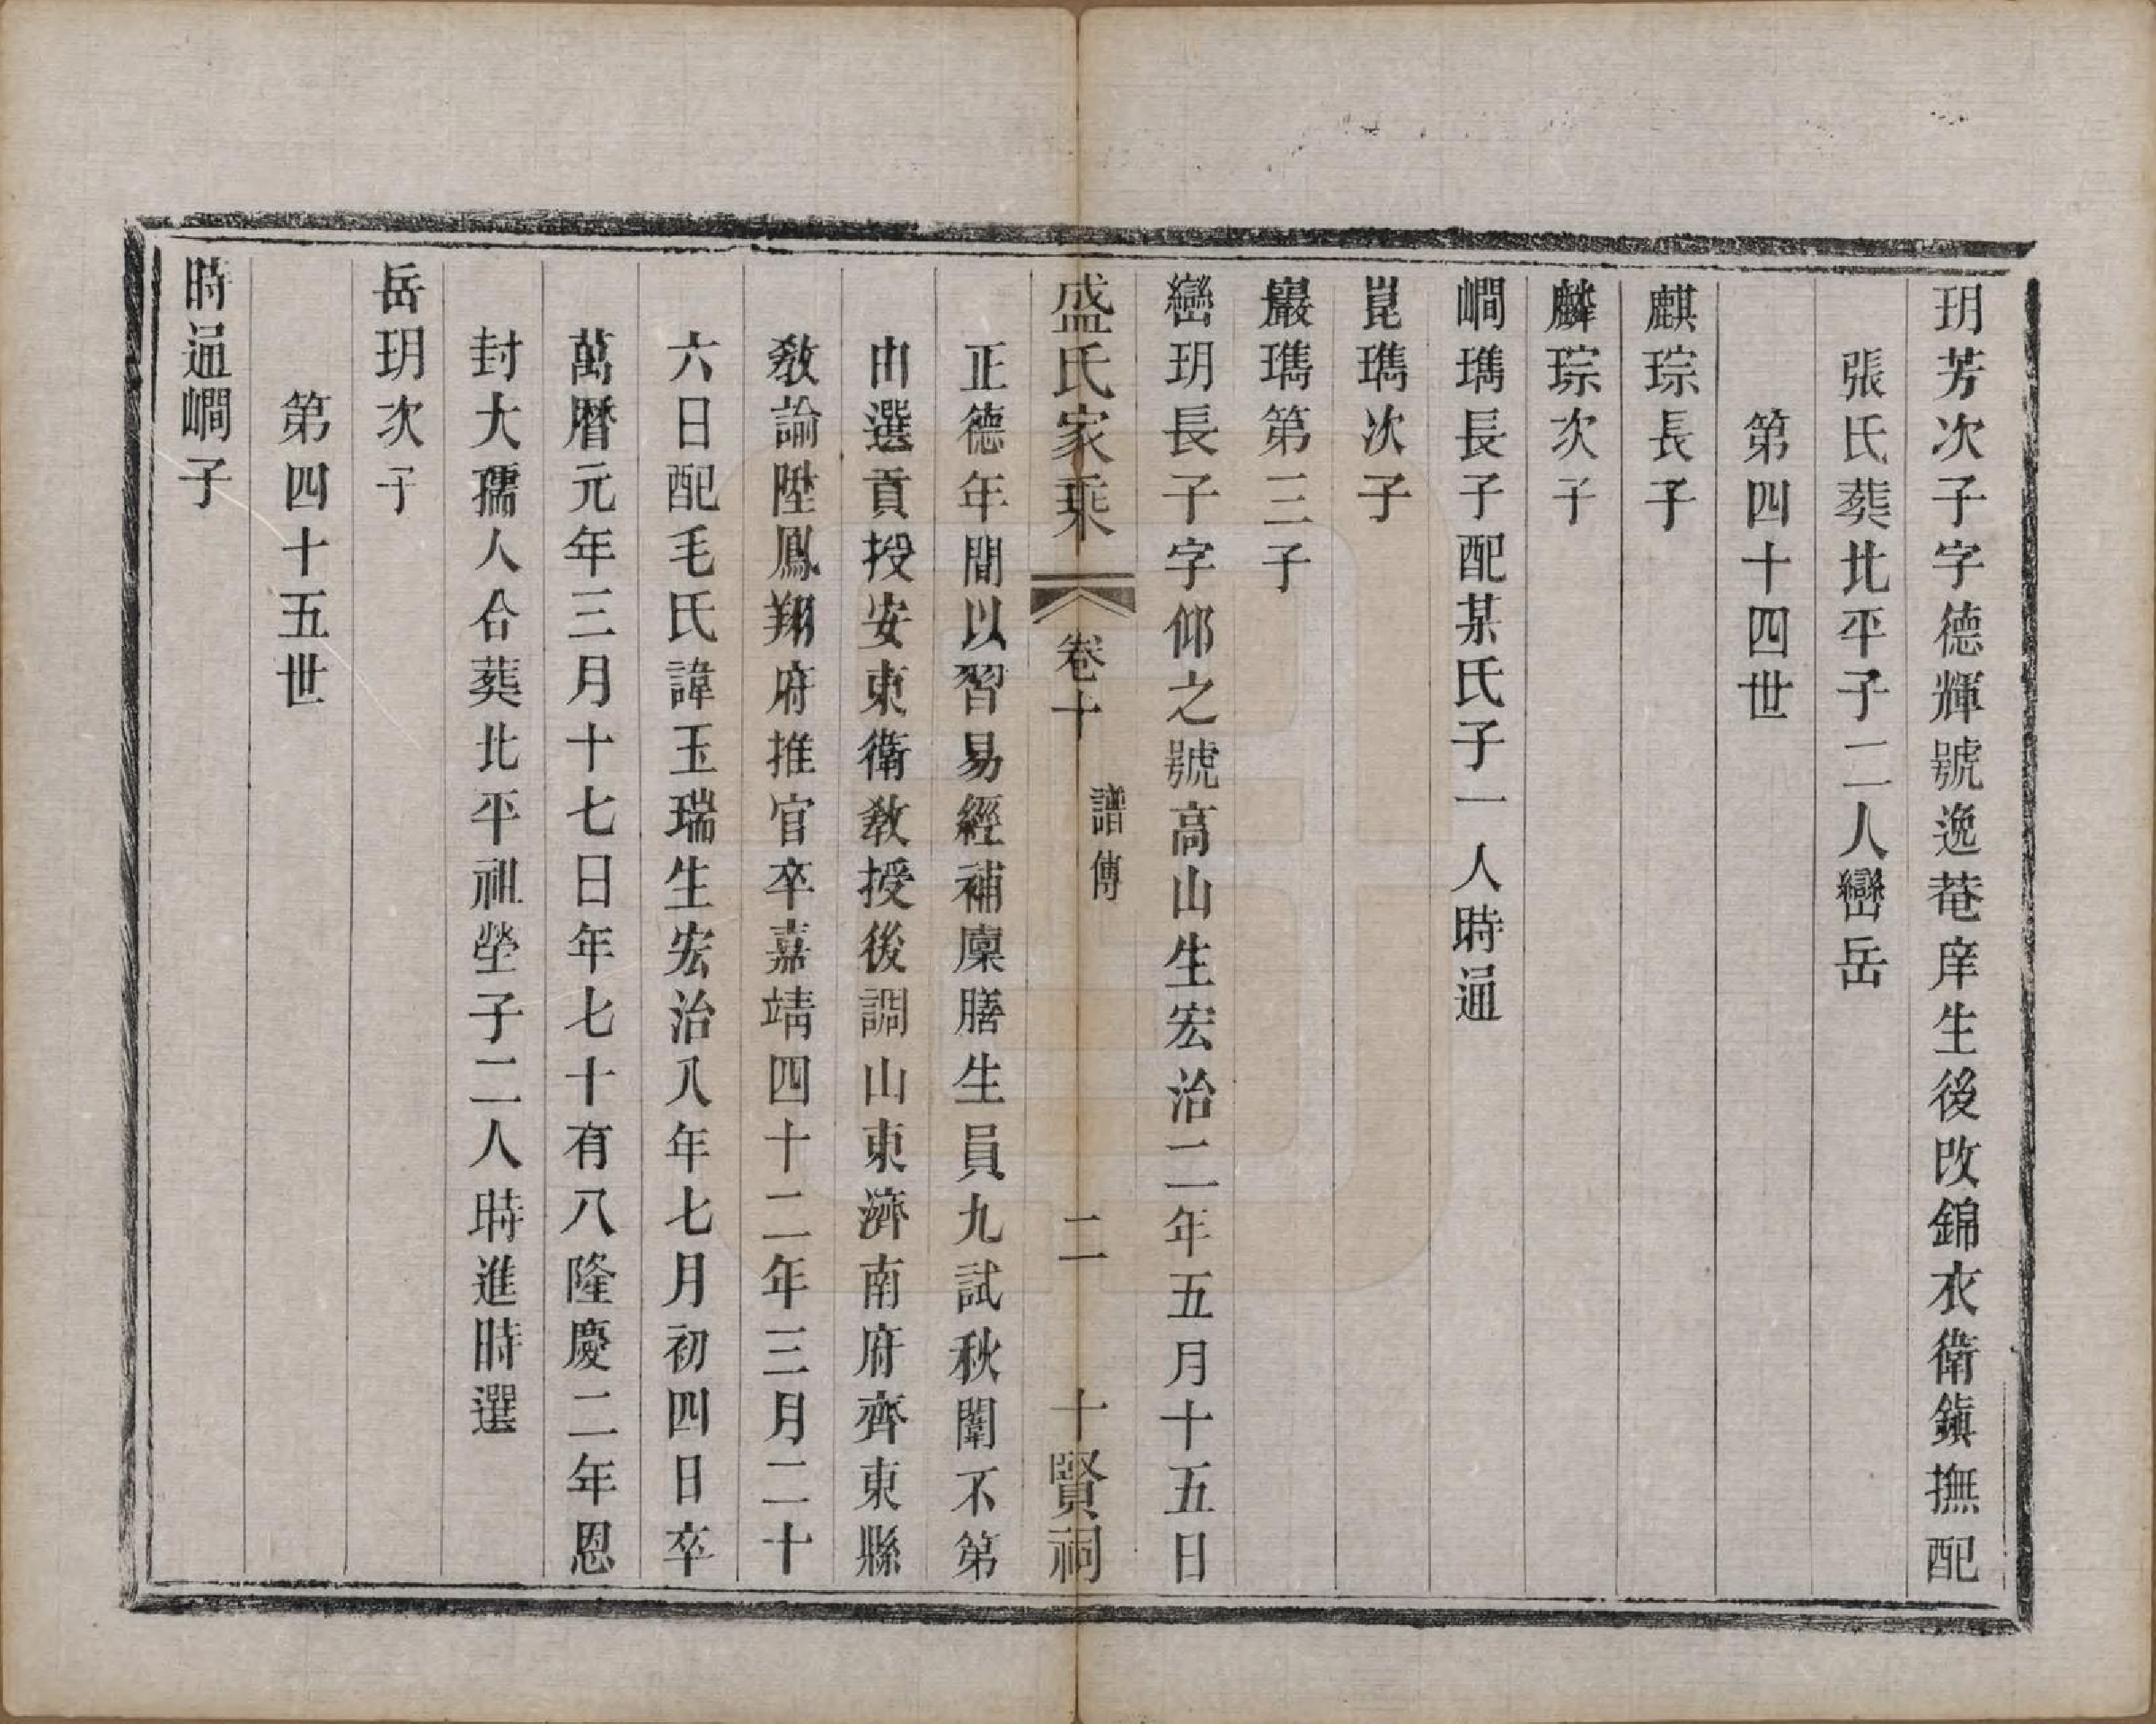 玥芳次子字德輝號逸菴庠生後改錦衣衛鎮撫配
張氏葬北平子二人巒岳
第四十四世
麒琮長子
麟琮次子
㟨璡長子配某氏子一人時通
崑璡次子
巖璡第三子
巒玥長子字仰之號高山生宏治二年五月十五日
盛氏家乘
卷十
譜傳
二
十賢祠
正德年間以習易經補廩膳生員九試秋闈不第
由選貢授安東衛教授後調山東濟南府齊東縣
教諭陞鳳翔府推官卒嘉靖四十二年三月二十
六日配毛氏諱玉瑞生宏治八年七月初四日卒
萬曆元年三月十七日年七十有八隆慶二年恩
封大孺人合葬北平祖塋子二人時進時選
岳玥次子
第四十五世
時通㟨子